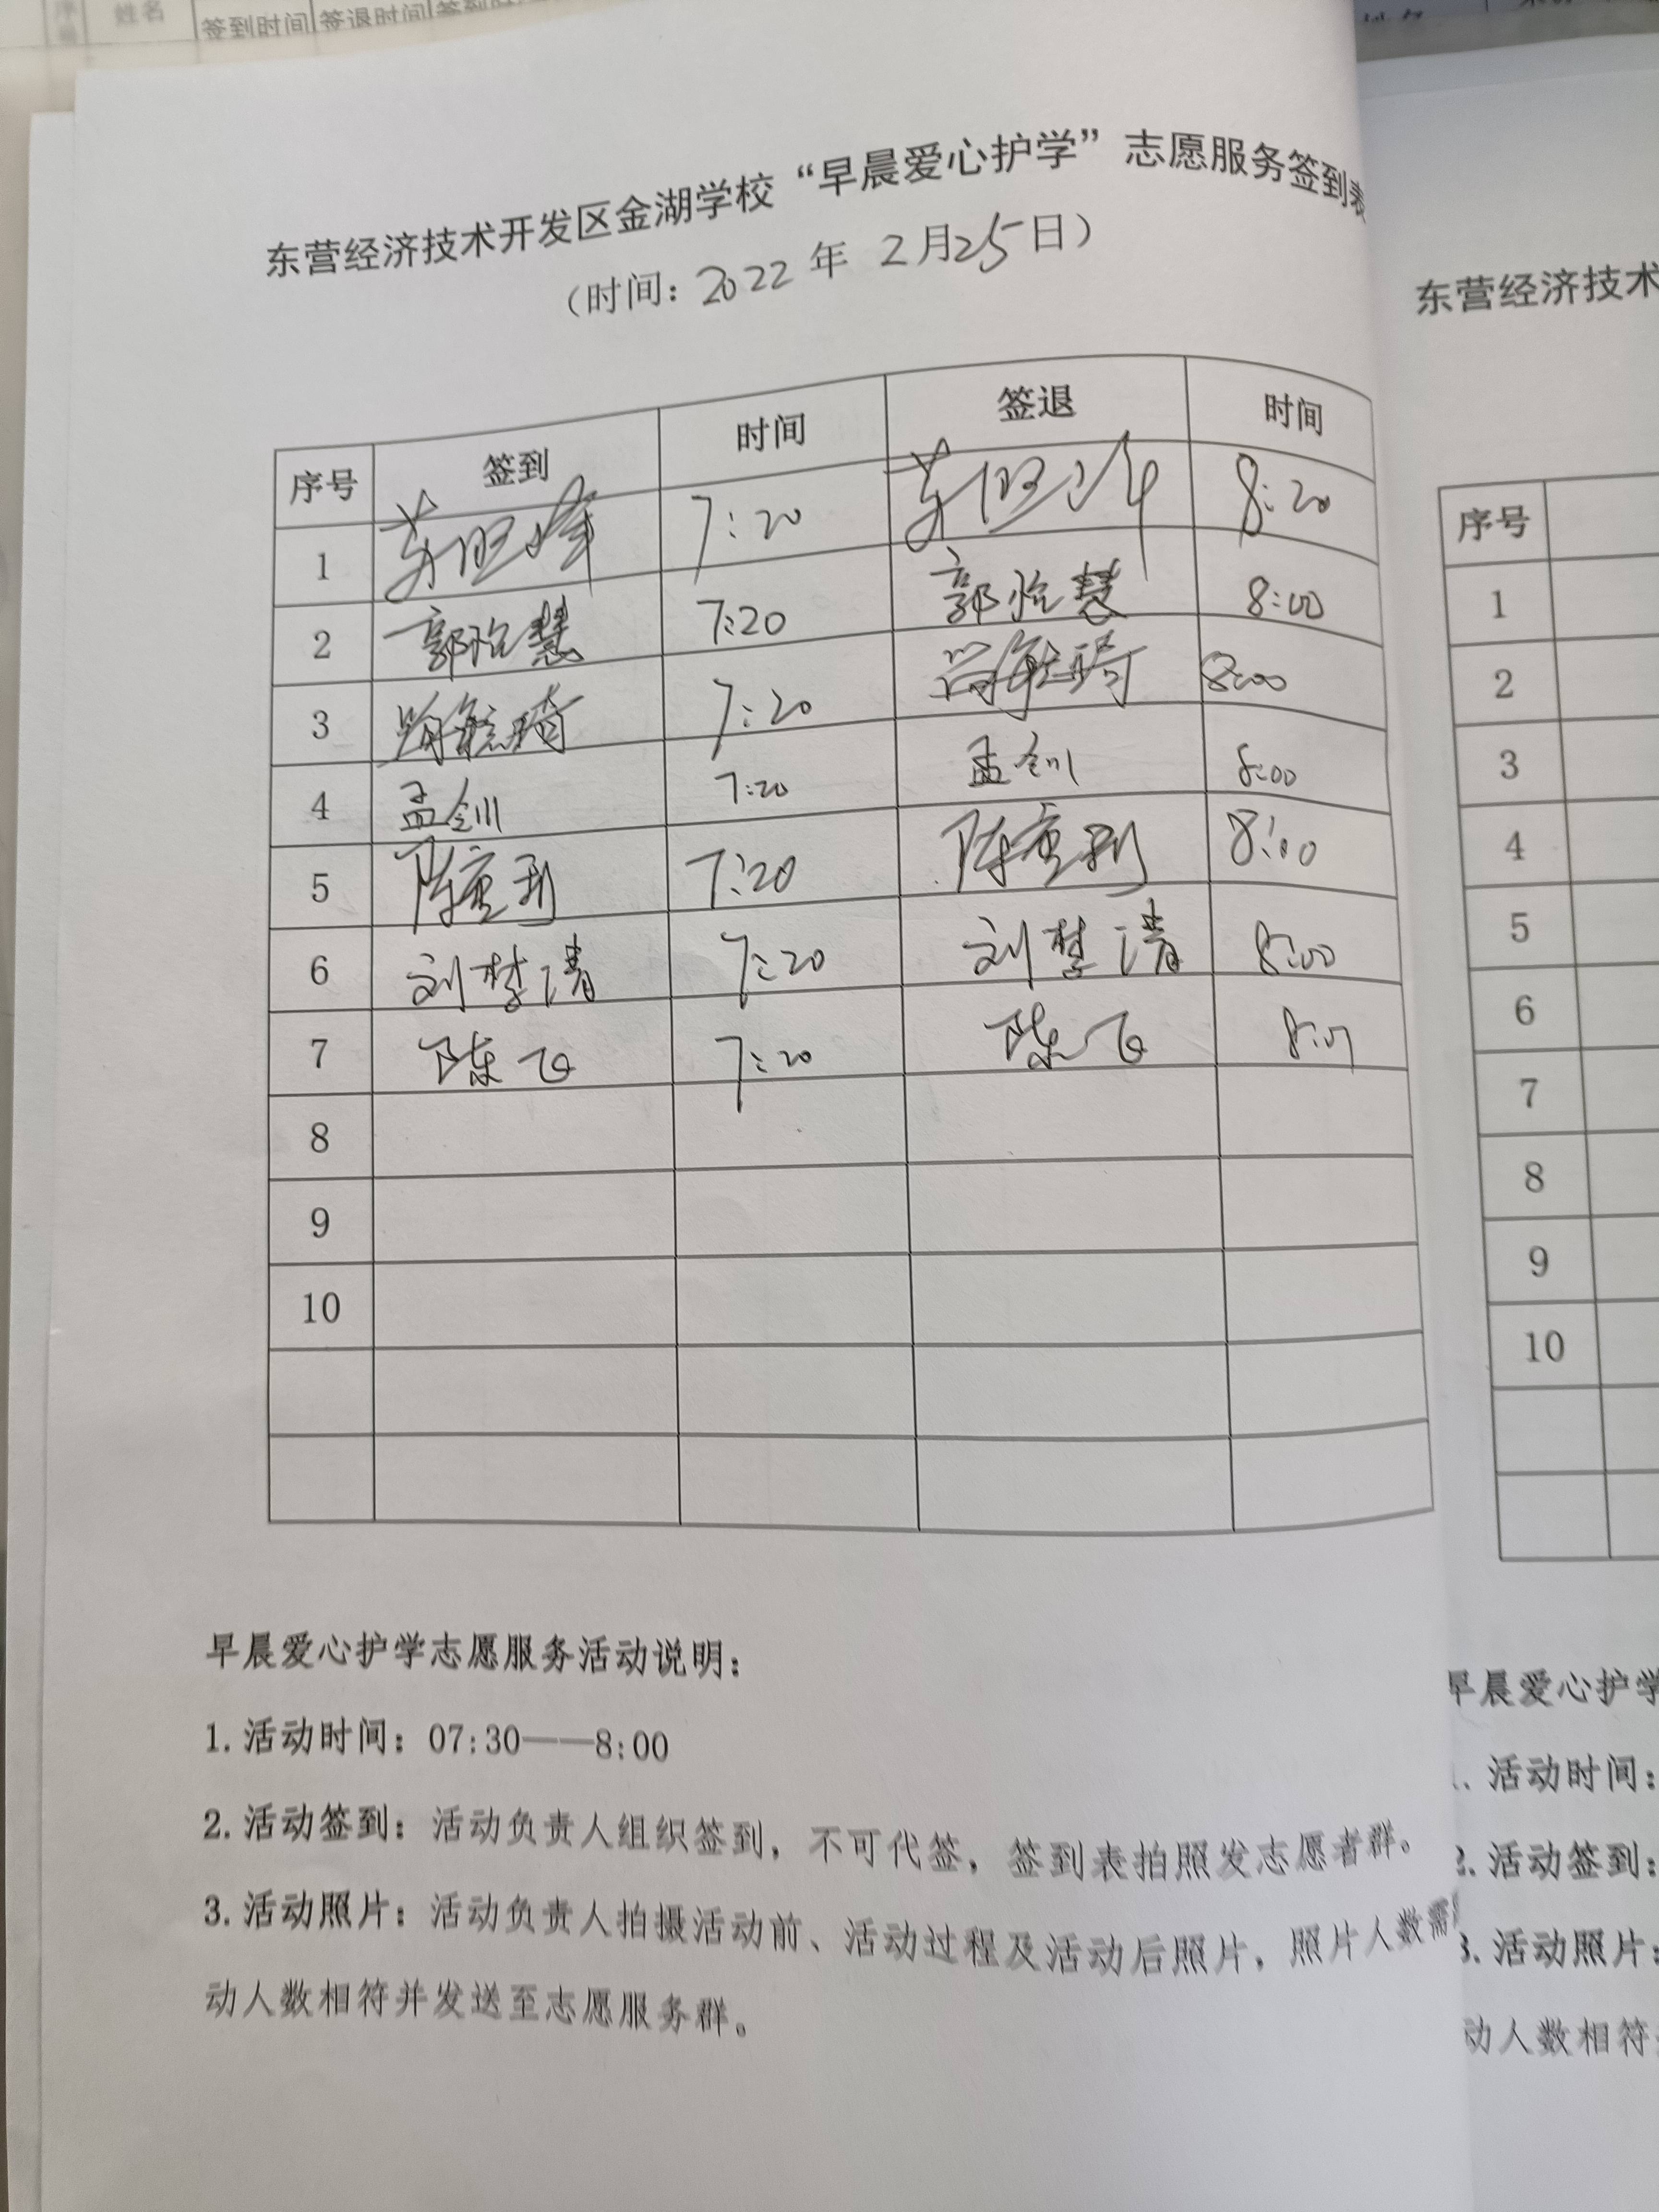 姓名
签到时间 签退时间
东营经济技术开发区金湖学校“早晨爱心护学”志愿服务签到表
（时间：2022 年 2月25日）
序号 签到 时间 签退 时间
1 7:20 8:20
2 郭怡慧 7:20 郭怡慧 8:00
3 7:20 8:00
4 孟钏 7:20 孟钏 8:00
5 7:20 8:00
6 刘梦清 7:20 刘梦清 8:00
7 陈飞 7:20 陈飞
8
9
10
早晨爱心护学志愿服务活动说明：
1.活动时间：07:30——8:00
2.活动签到：活动负责人组织签到，不可代签，签到表拍照发志愿者群。
3.活动照片：活动负责人拍摄活动前、活动过程及活动后照片，照片人数需
动人数相符并发送至志愿服务群。
东营经济技术
序号
1
2
3
4
5
6
7
8
9
10
早晨爱心护学
活动时间：
2.活动签到：
3.活动照片：
动人数相符